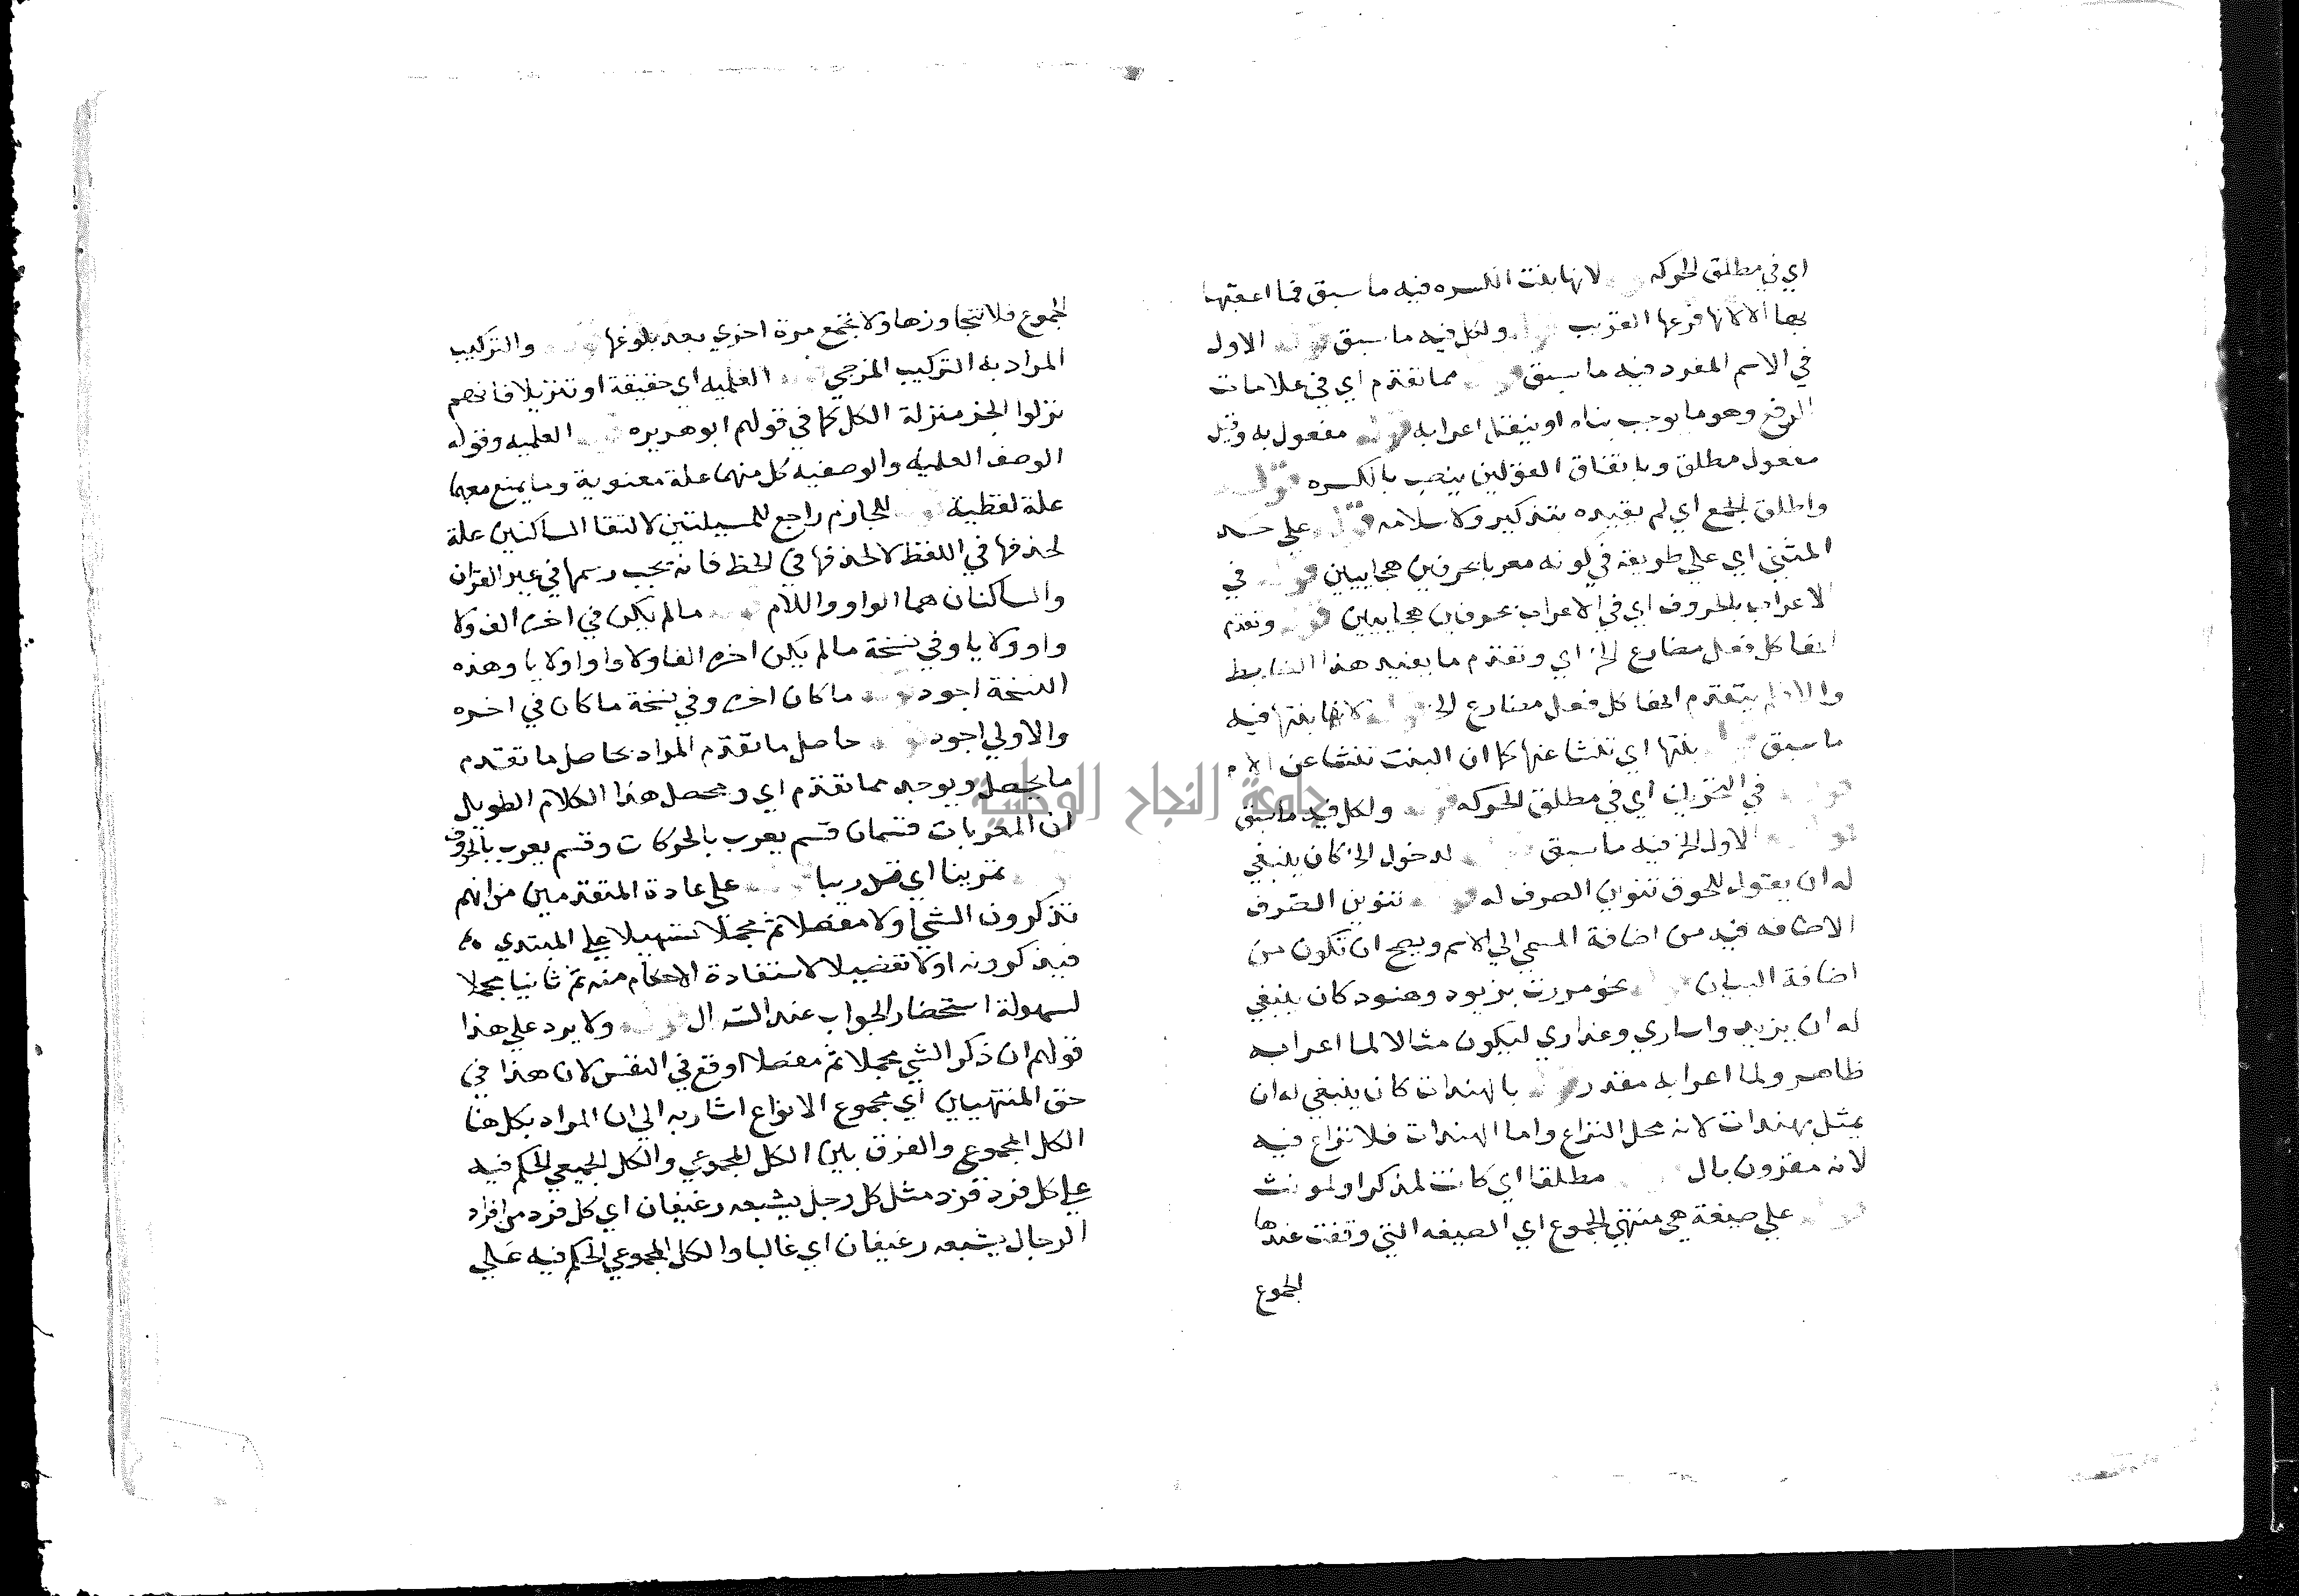 اي في مطلق الحركه لانها بنت الكسره فيه ما سبق فما اعقبتها
بها الا لانها فرعها القريب ولكل فيه ما سبق قوله الاول
في الاسم المفرد فيه ما سبق قوله مما تقدم اي في علامات
الرفع وهو ما يوجب بناه او ينقل اعرابه قوله مفعول به وقيل
مفعول مطلق وباتفاق القولين ينصب بالكسره قوله
واطلق الجمع اي لم يقيده بتذكير ولا سلامه قوله على حد
المثني اي علي طريقته في كونه معربا بحرفين هجاييين قوله في
الاعراب بالحروف اي في الاعراب بحرفين هجاييين قوله وتقدم
انفا كل فعل مضارع الخ اي وتقدم ما يفيد هذا الضابط
والا لم يتقدم انفا كل فعل مضارع الخ قوله لانها بنتها فيه
ما سبق بنتها اي تنشا عنها كما ان البنت تنشا عن الام
قوله في التحريك اي في مطلق الحركه قوله ولكل فيه ما سبق
قوله الاول الخ فيه ما سبق لدخول الخ كان ينبغي
له ان يقول للحوق تنوين الصرف له قوله تنوين الصرف
الاضافه فيه من اضافة المسمي الي الاسم ويصح ان تكون من
اضافة البيان نحو مررت بزيود وهنود كان ينبغي
له ان يزيد واساري وعذاري ليكون مثالا لما اعرابه
ظاهر ولما اعرابه مقدر قوله بالهندات كان ينبغي له ان
يمثل بهندات لانه محل النزاع واما الهندات فلا نزاع فيه
لانه مقرون بال مطلقا اي كانت لمذكر او لمونث
قوله علي صيغة هي منتهي الجموع اي الصيغه التي وقفت عندها
الجموع
الجموع فلا تتجاوزها ولا تجمع مرة اخري بعد بلوغها قوله والتركيب
المراد به التركيب المزجي العلميه اي حقيقة او تنزيلا فانهم
نزلوا الجز منزلة الكل كما في قولهم ابو هريره العلميه وقوله
الوصف العلميه والوصفيه كل منهما علة معنوية وما يمنع معهما
علة لفظية للجازم راجع للمسيلتين لالتقا الساكنين علة
لحذفها في اللفظ لا لحذفها في الخط فانه يجب رسمها في غير القران
والساكنان هما الواو واللام ما لم يكن في اخره الف ولا
واو ولا يا وفي نسخة ما لم يكن اخره الفا ولا واوا ولا يا وهذه
النسخة اجود قوله ما كان اخره وفي نسخة ما كان في اخره
والاولي اجود حاصل ما تقدم المراد بحاصل ما تقدم
ما يحصل ويوجد مما تقدم اي ومحصل هذا الكلام الطويل
ان المعربات قسمان قسم يعرب بالحركات وقسم يعرب بالحروف
تمرينا اي على عادة المتقدمين من انهم
يذكرون الشي اولا مفصلا ثم مجملا تسهيلا علي المبتدي
فيذكرونه اولا تفصيلا لاستفادة الاحكام منه ثم ثانيا مجملا
لسهولة استحضار الجواب عند السوال قوله ولا يرد علي هذا
قولهم ان ذكر الشي مجملا ثم مفصلا اوقع في النفس لان هذا في
حق المنتهيين اي مجموع الانواع اشار به الي ان المراد بكل هنا
الكل المجموعي والفرق بين الكل المجموعي والكل الجميعي الحكم فيه
علي كل فرد فرد مثل كل رجل يشبعه رغيفان اي كل فرد من افراد
الرجال يشبعه رغيفان اي غالبا والكل المجموعي الحكم فيه علي
جامعة النجاح الوطنية